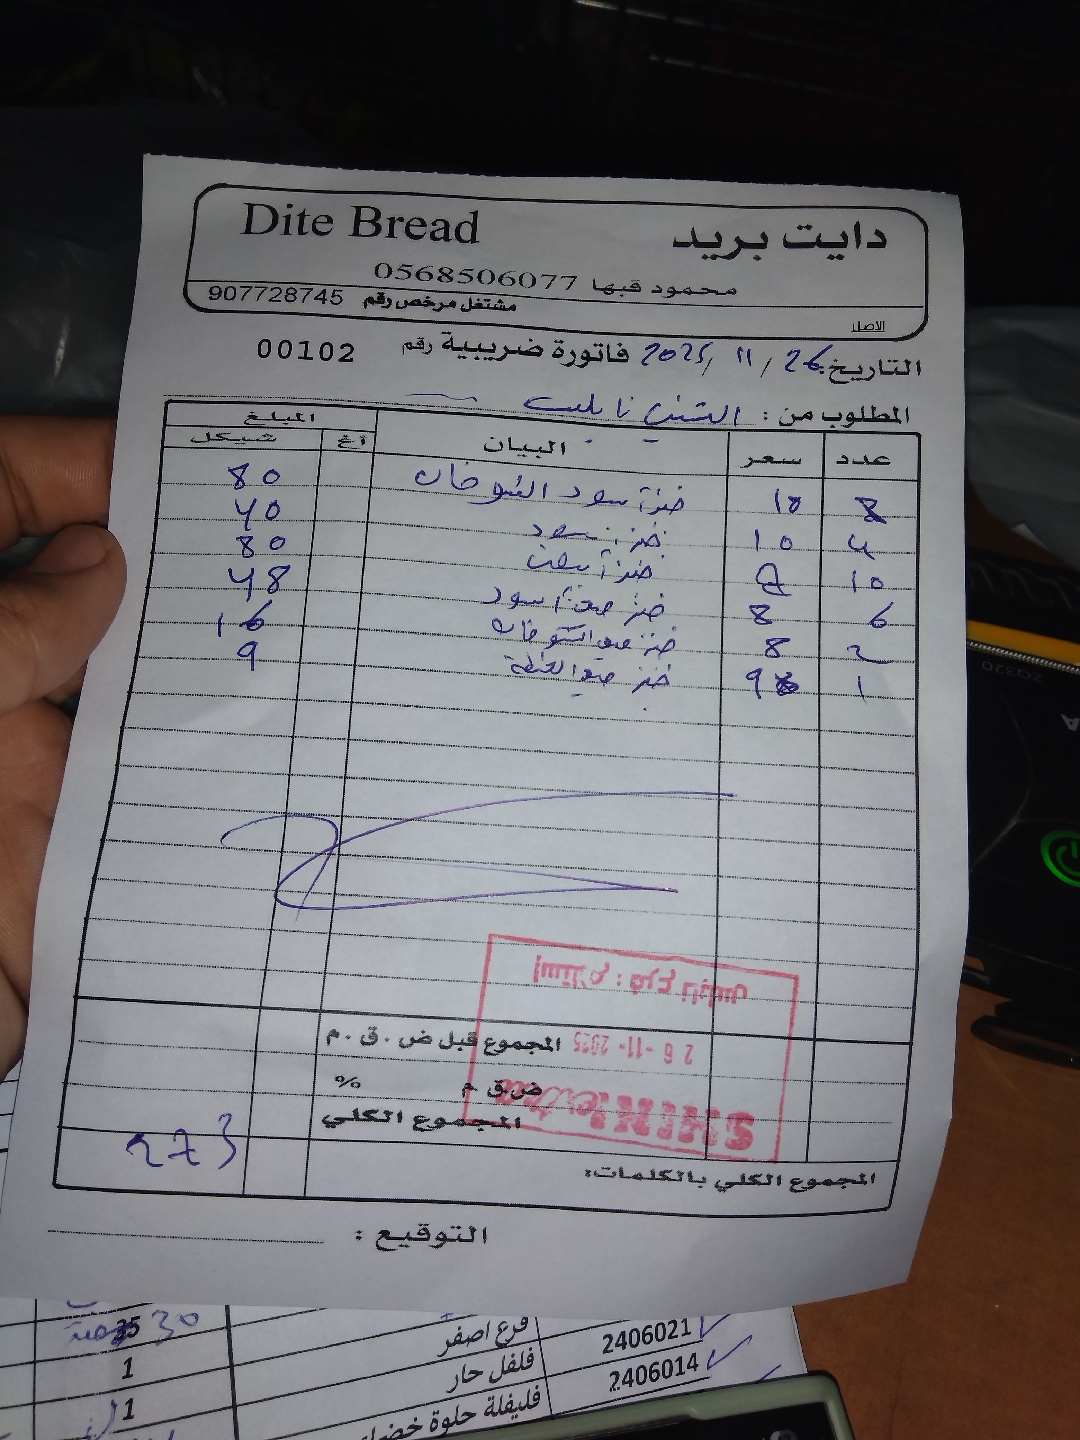 Dite Bread دايت بريد
محمود قبها 0568506077
مشتغل مرخص رقم 907728745
الاصل
التاريخ: 26 / 11 / 2025 فاتورة ضريبية رقم 00102
المطلوب من : الشني نابلس
عدد سعر البيان المبلغ
أغ شيكل
8 10 خبز أسود الشوفان 80
4 10 خبز أسود 40
10 8 خبز أبيض 80
6 8 خبز أسود 48
2 8 خبز الشوفان 16
1 9 خبز 9
استلام : فرع نابلس
المجموع قبل ض . ق . م
26 -11- 2025
ض.ق.م %
المجموع الكلي
SHINI extra
273
المجموع الكلي بالكلمات:
التوقيع :
35 30 قرع اصفر 2406021
1 فلفل حار 2406014
1 فليفلة حلوة
ZQ320